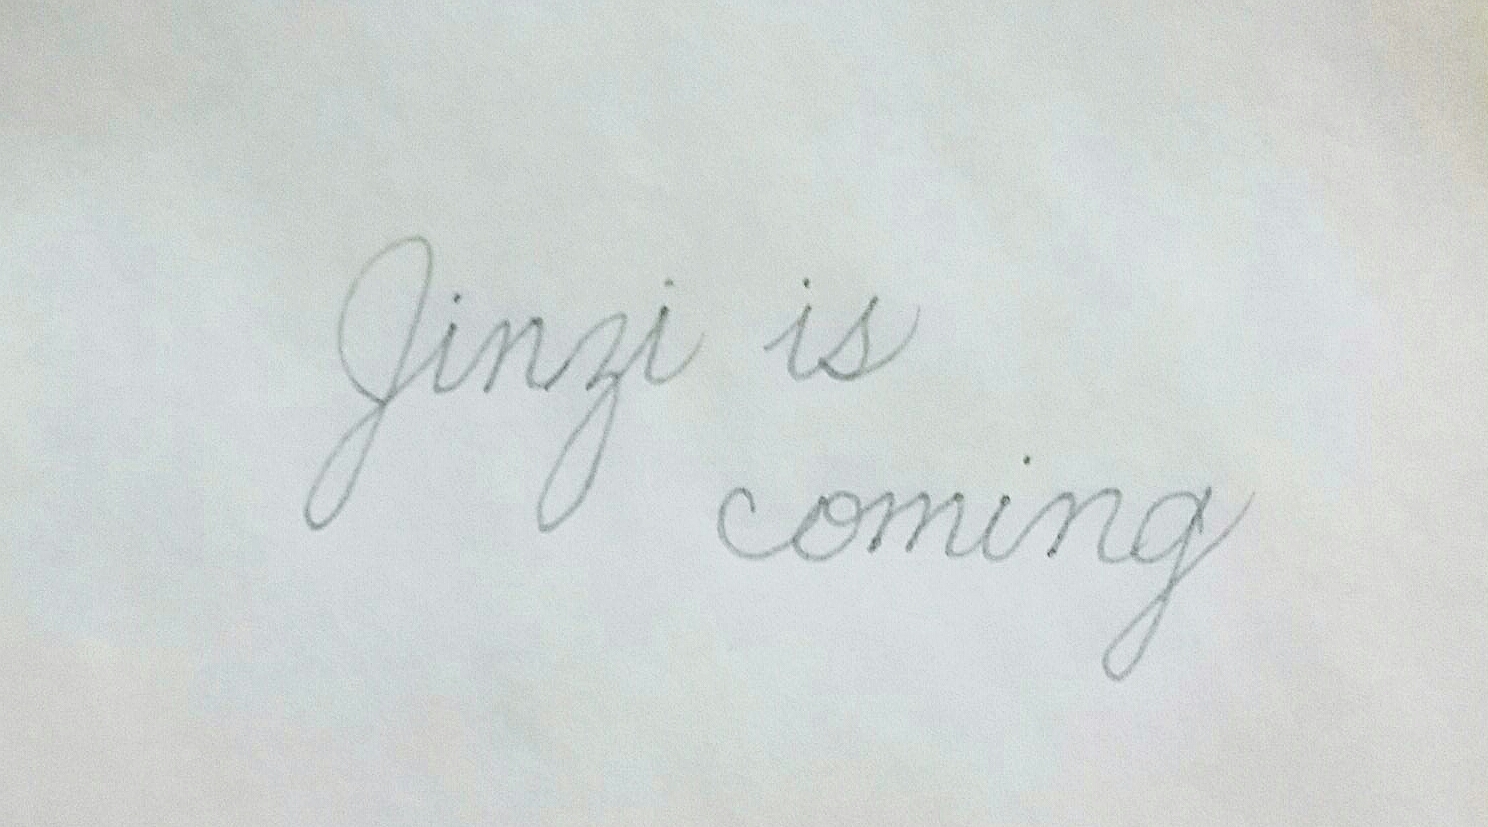 Jinzi is
coming